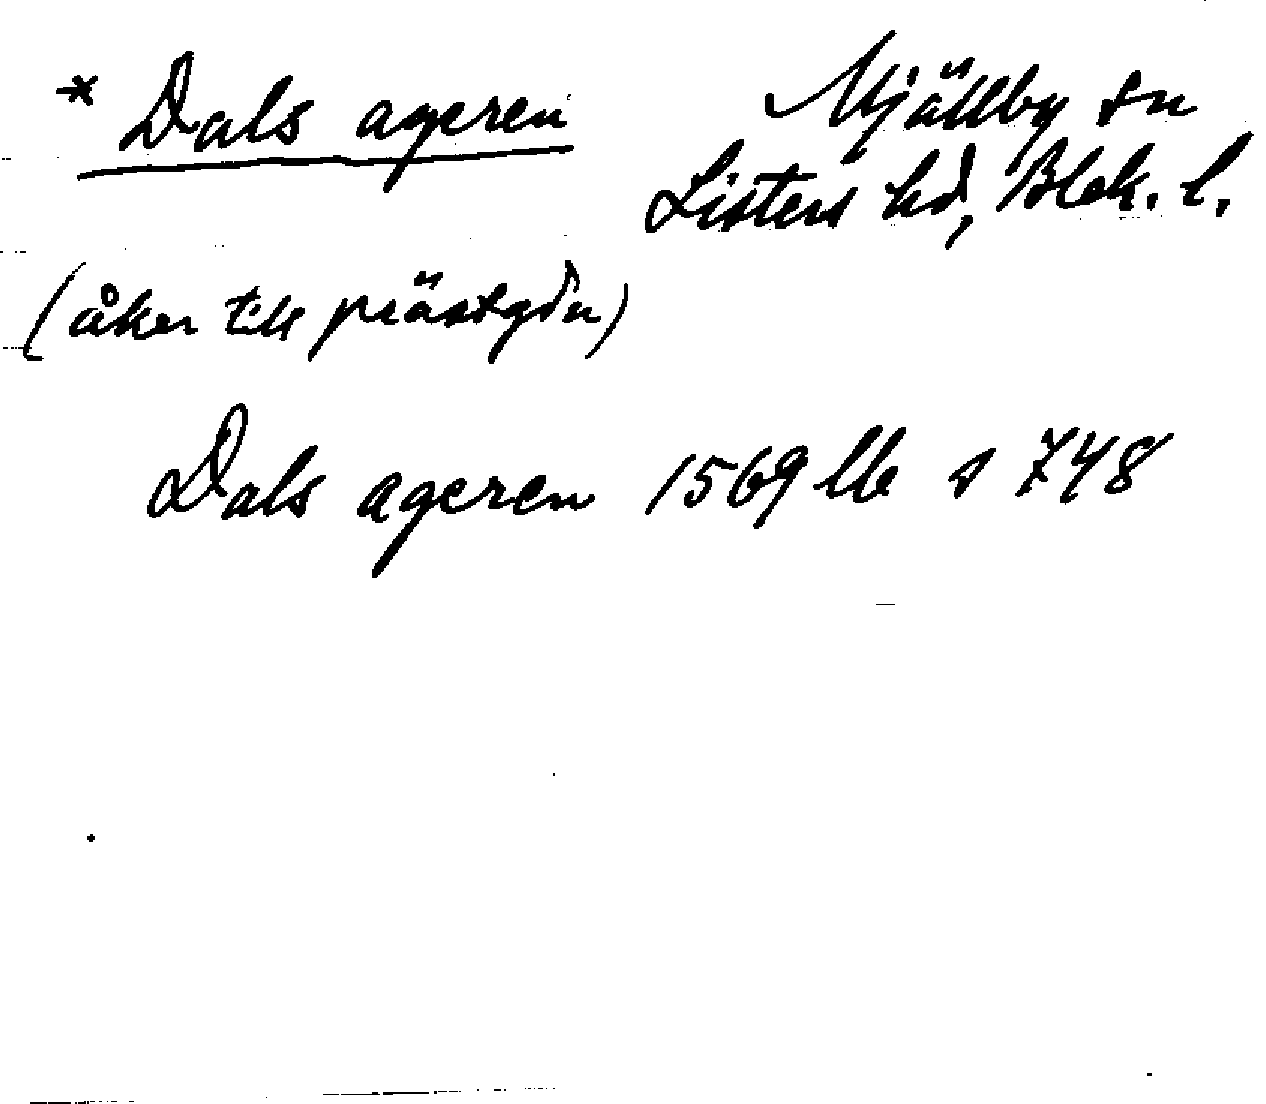 * Dals ageren
Mjällby sn
Listers hd, Blek. l.
(åker till prästgdn)
Dals ageren 1569 llb s 748